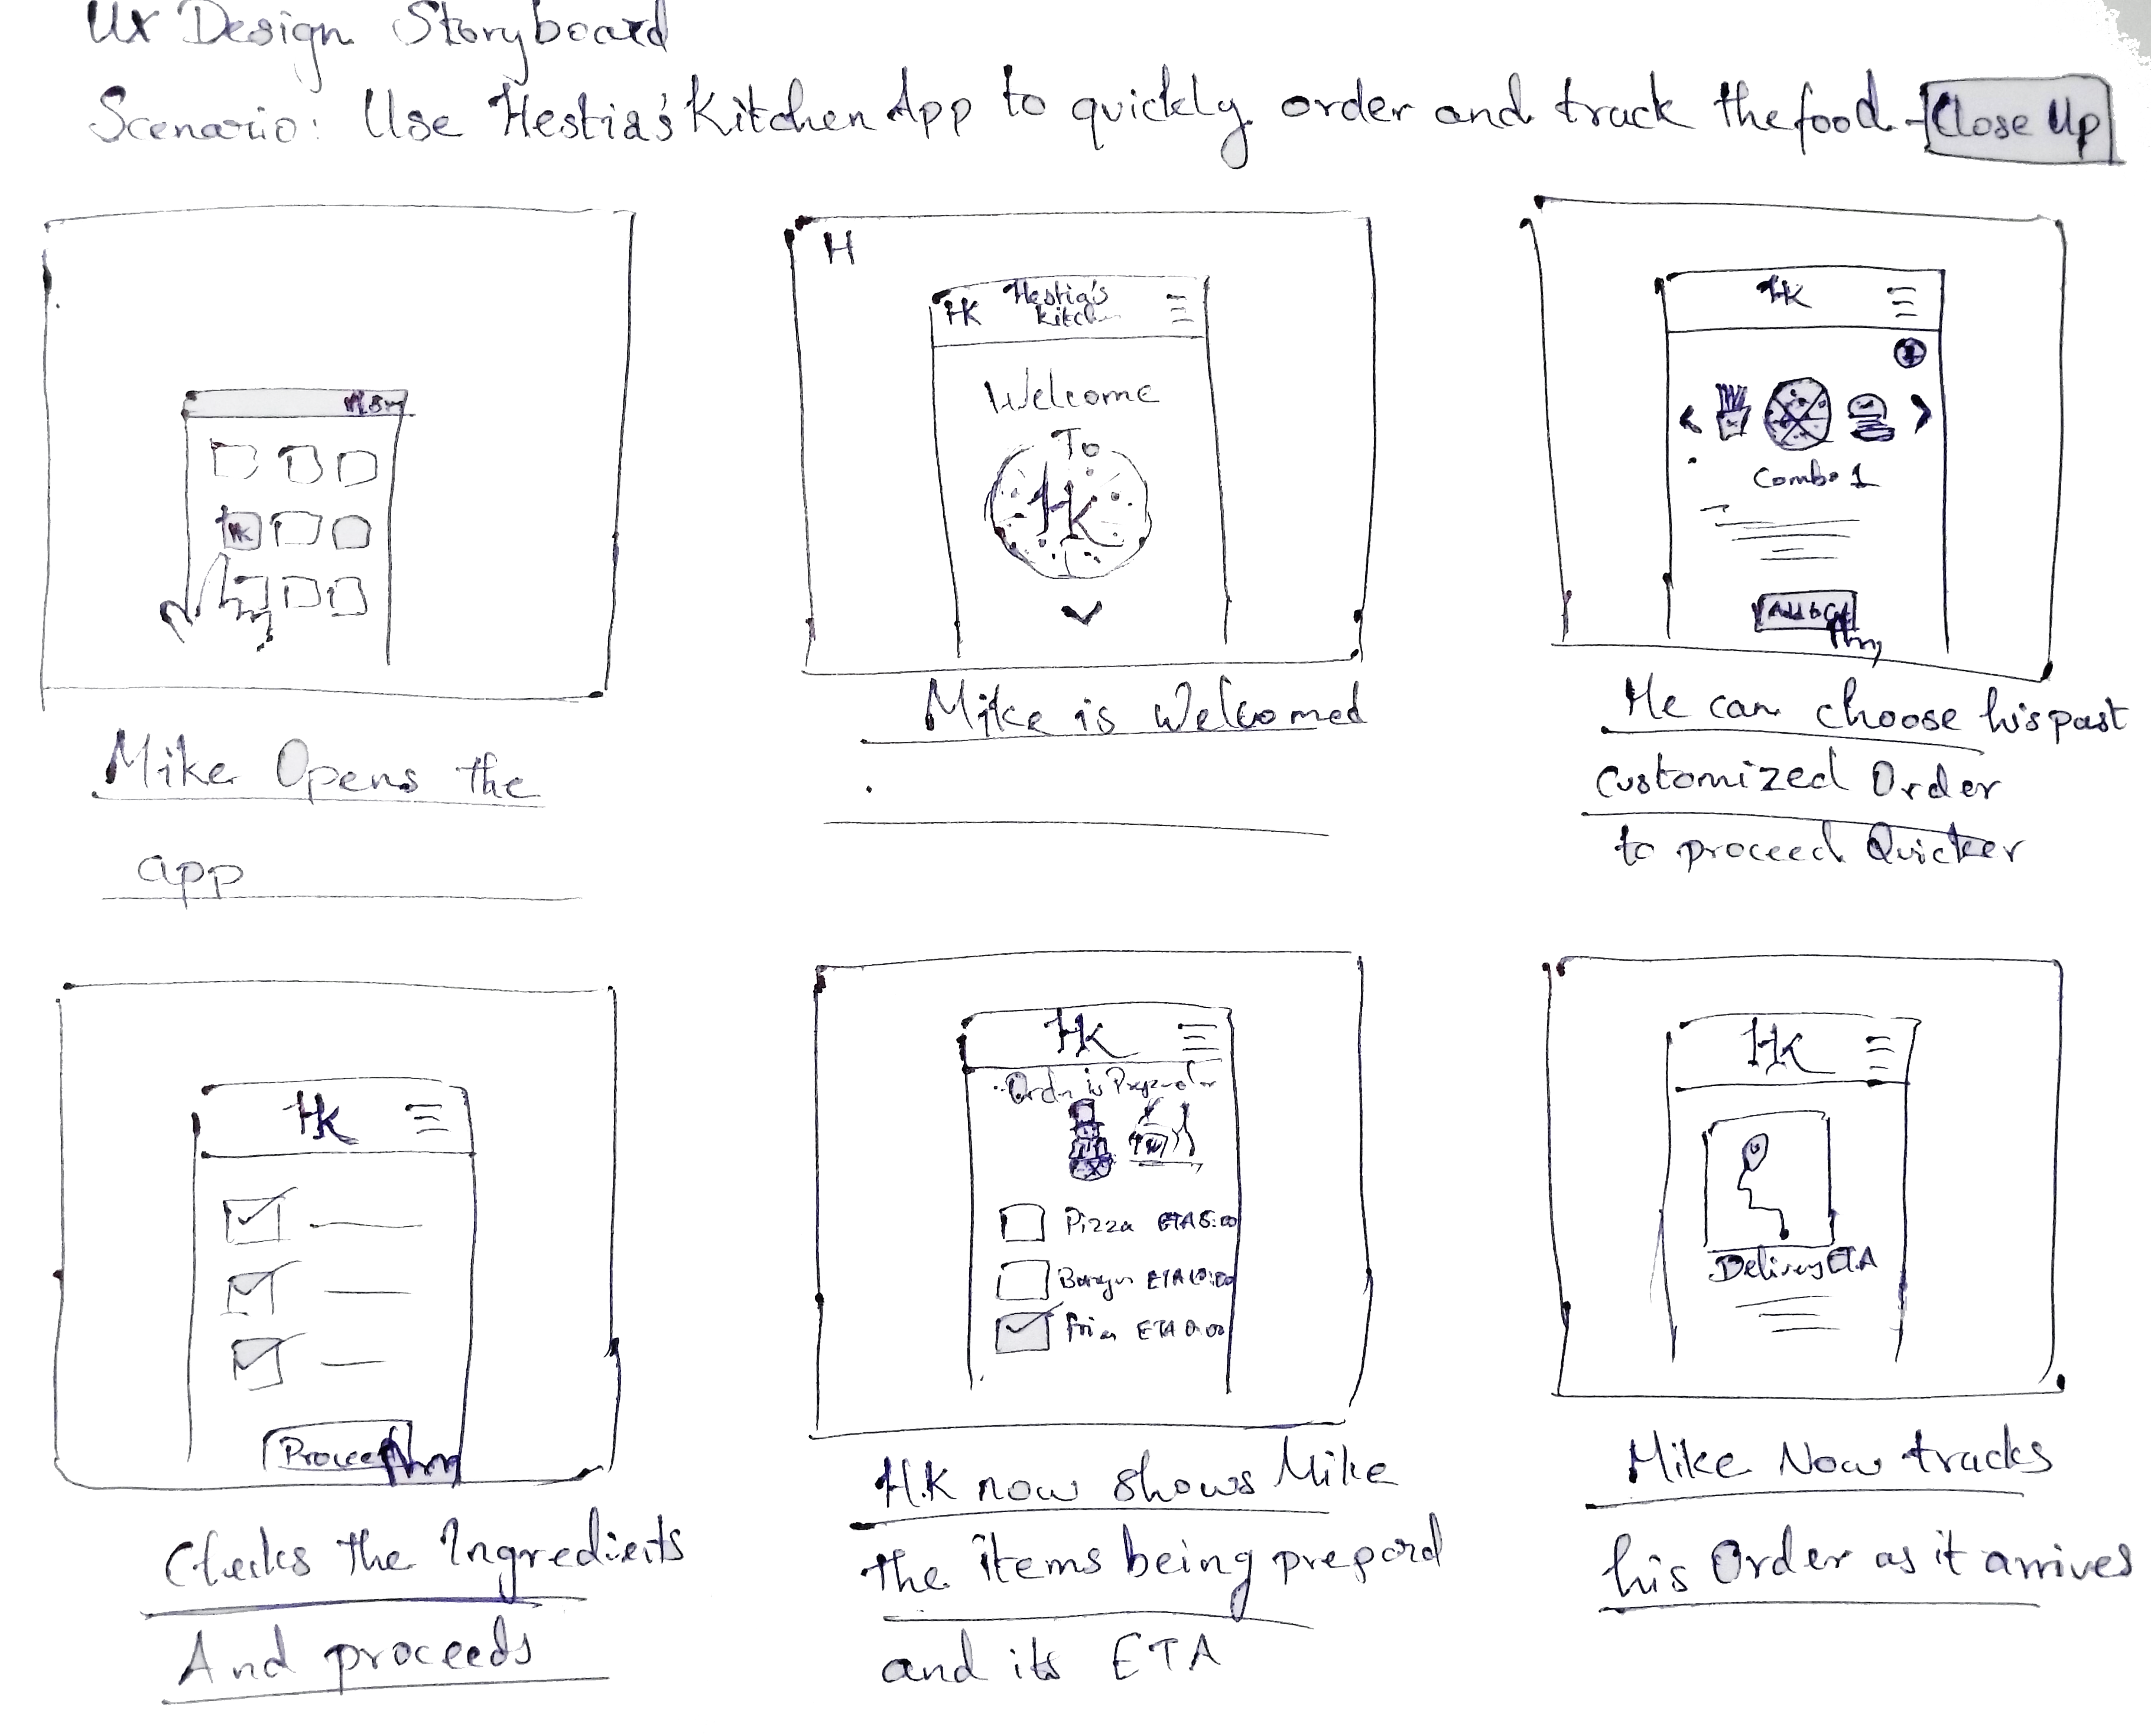 Ux Design Storyboard
Scenario: Use Hestia's Kitchen App to quickly order and track the food - Close Up
HK
Mike Opens the
app
H
HK Hestia's
Kitchen
Welcome
To
HK
Mike is Welcomed
HK
Combo 1
Add to Cart
He can choose his past
customized Order
to proceed Quicker
HK
Proceed
Checks the Ingredients
And proceeds
HK
Order is
Pizza ETA 5:00
Burger ETA 10:00
Fries ETA 0:00
H.K now shows Mike
the items being prepard
and its ETA
HK
Delivery ETA
Mike Now tracks
his Order as it arrives